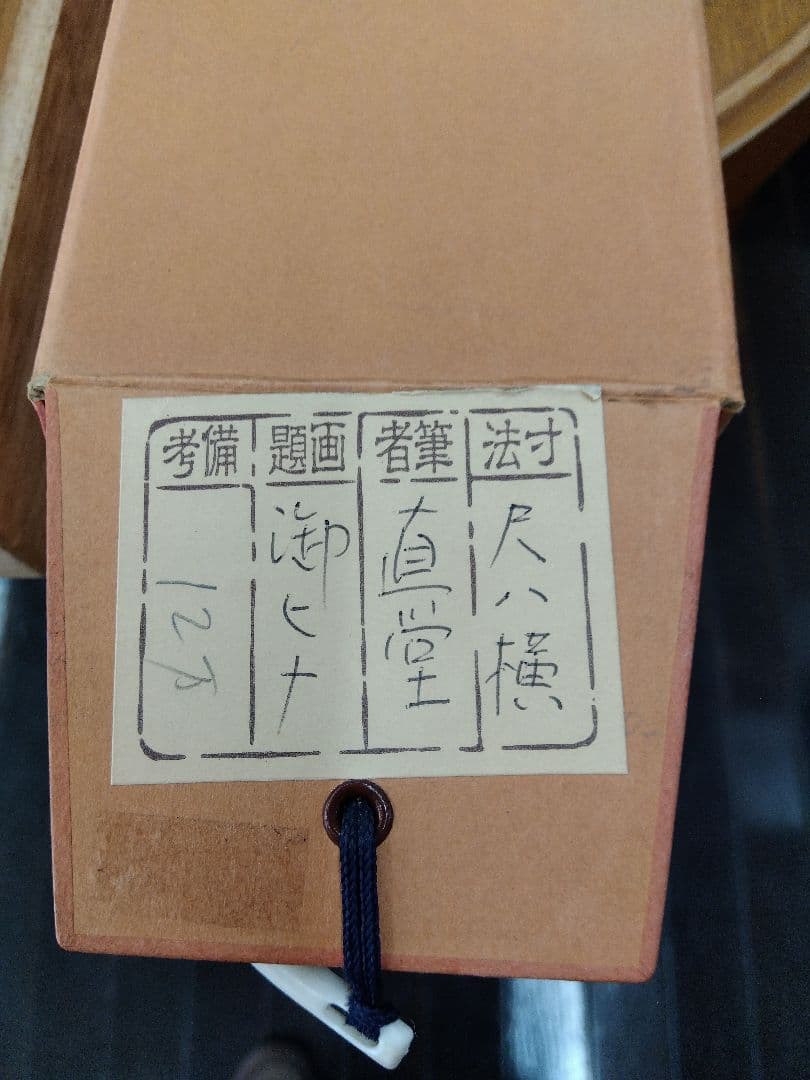 寸法
尺八横
筆者
直堂
画題
御ヒナ
備考
12万